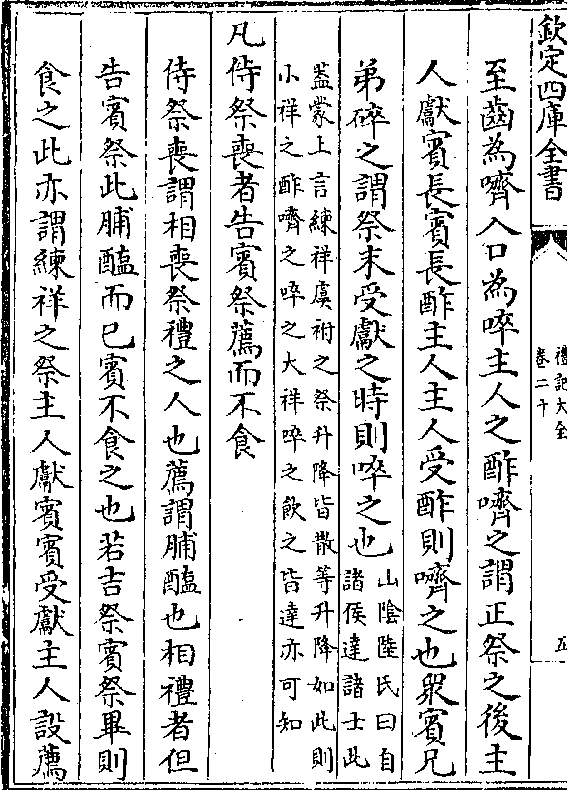 欽定四庫全書
禮記大全
卷二十
五
至齒為嚌入口為啐主人之酢嚌之謂正祭之後主
人獻賓長賓長酢主人主人受酢則嚌之也衆賓兄
弟啐之謂祭末受獻之時則啐之也
山陰陸氏曰自
諸侯達諸士此
葢蒙上言練祥虞祔之祭升降皆散等升降如此則
小祥之酢嚌之啐之大祥啐之飲之皆達亦可知
凡侍祭喪者告賓祭薦而不食
侍祭喪謂相喪祭禮之人也薦謂脯醢也相禮者但
告賓祭此脯醢而已賓不食之也若吉祭賓祭畢則
食之此亦謂練祥之祭主人獻賓賓受獻主人設薦